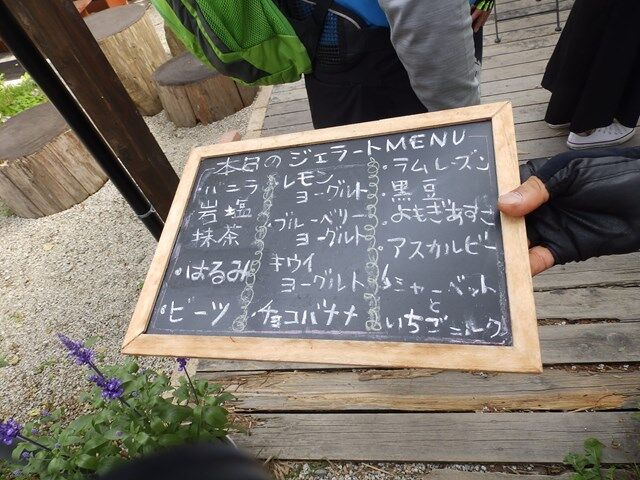 本日のジェラートMENU
・バニラ
岩塩
抹茶
・はるみ
・ビーツ
レモン
ヨーグルト
・ブルーベリー
ヨーグルト
キウイ
ヨーグルト
・チョコバナナ
・ラムレーズン
黒豆
・よもぎあずき
・アスカルビー
シャーベット
と
いちごミルク